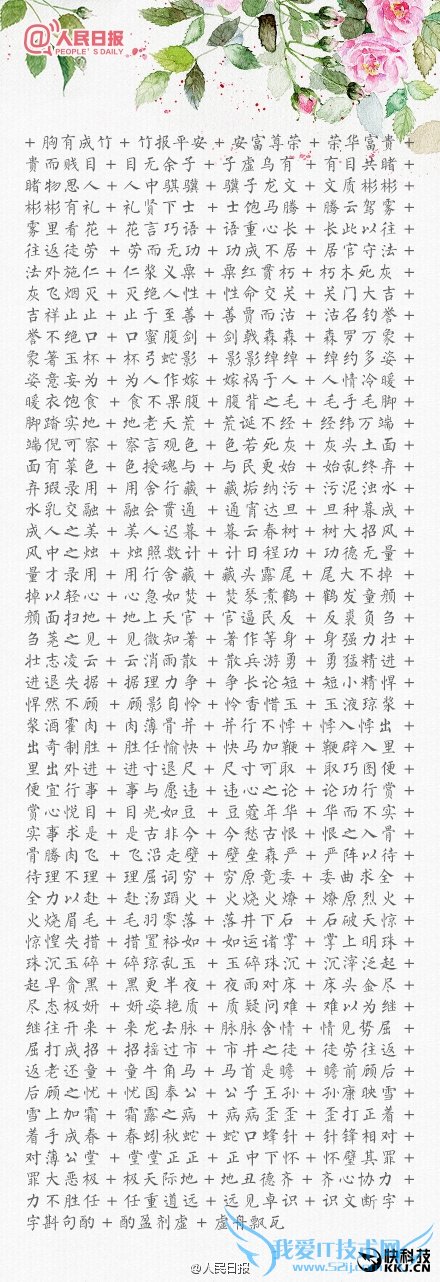 @人民日报
PEOPLE'S DAILY
+ 胸有成竹 + 竹报平安 + 安富尊荣 + 荣华富贵 +
贵而贱目 + 目无余子 + 子虚乌有 + 有目共睹 +
睹物思人 + 人中骐骥 + 骥子龙文 + 文质彬彬 +
彬彬有礼 + 礼贤下士 + 士饱马腾 + 腾云驾雾 +
雾里看花 + 花言巧语 + 语重心长 + 长此以往 +
往返徒劳 + 劳而无功 + 功成不居 + 居官守法 +
法外施仁 + 仁浆义粟 + 粟红贯朽 + 朽木死灰 +
灰飞烟灭 + 灭绝人性 + 性命交关 + 关门大吉 +
吉祥止止 + 止于至善 + 善贾而沽 + 沽名钓誉 +
誉不绝口 + 口蜜腹剑 + 剑戟森森 + 森罗万象 +
象箸玉杯 + 杯弓蛇影 + 影影绰绰 + 绰约多姿 +
姿意妄为 + 为人作嫁 + 嫁祸于人 + 人情冷暖 +
暖衣饱食 + 食不果腹 + 腹背之毛 + 毛手毛脚 +
脚踏实地 + 地老天荒 + 荒诞不经 + 经纬万端 +
端倪可察 + 察言观色 + 色若死灰 + 灰头土面 +
面有菜色 + 色授魂与 + 与民更始 + 始乱终弃 +
弃瑕录用 + 用舍行藏 + 藏垢纳污 + 污泥浊水 +
水乳交融 + 融会贯通 + 通宵达旦 + 旦种暮成 +
成人之美 + 美人迟暮 + 暮云春树 + 树大招风 +
风中之烛 + 烛照数计 + 计日程功 + 功德无量 +
量才录用 + 用行舍藏 + 藏头露尾 + 尾大不掉 +
掉以轻心 + 心急如焚 + 焚琴煮鹤 + 鹤发童颜 +
颜面扫地 + 地上天官 + 官逼民反 + 反裘负刍 +
刍荛之见 + 见微知著 + 著作等身 + 身强力壮 +
壮志凌云 + 云消雨散 + 散兵游勇 + 勇猛精进 +
进退失据 + 据理力争 + 争长论短 + 短小精悍 +
悍然不顾 + 顾影自怜 + 怜香惜玉 + 玉液琼浆 +
浆酒霍肉 + 肉薄骨并 + 并行不悖 + 悖入悖出 +
出奇制胜 + 胜任愉快 + 快马加鞭 + 鞭辟入里 +
里出外进 + 进寸退尺 + 尺寸可取 + 取巧图便 +
便宜行事 + 事与愿违 + 违心之论 + 论功行赏 +
赏心悦目 + 目光如豆 + 豆蔻年华 + 华而不实 +
实事求是 + 是古非今 + 今愁古恨 + 恨之入骨 +
骨腾肉飞 + 飞沿走壁 + 壁垒森严 + 严阵以待 +
待理不理 + 理屈词穷 + 穷原竟委 + 委曲求全 +
全力以赴 + 赴汤蹈火 + 火烧火燎 + 燎原烈火 +
火烧眉毛 + 毛羽零落 + 落井下石 + 石破天惊 +
惊惶失措 + 措置裕如 + 如运诸掌 + 掌上明珠 +
珠沉玉碎 + 碎琼乱玉 + 玉碎珠沉 + 沉滓泛起 +
起早贪黑 + 黑更半夜 + 夜雨对床 + 床头金尽 +
尽态极妍 + 妍姿艳质 + 质疑问难 + 难以为继 +
继往开来 + 来龙去脉 + 脉脉含情 + 情见势屈 +
屈打成招 + 招摇过市 + 市井之徒 + 徒劳往返 +
返老还童 + 童牛角马 + 马首是瞻 + 瞻前顾后 +
后顾之忧 + 忧国奉公 + 公子王孙 + 孙康映雪 +
雪上加霜 + 霜露之病 + 病病歪歪 + 歪打正着 +
着手成春 + 春蚓秋蛇 + 蛇口蜂针 + 针锋相对 +
对薄公堂 + 堂堂正正 + 正中下怀 + 怀璧其罪 +
罪大恶极 + 极天际地 + 地丑德齐 + 齐心协力 +
力不胜任 + 任重道远 + 远见卓识 + 识文断字 +
字斟句酌 + 酌盈剂虚 + 虚舟飘瓦
@人民日报
我爱IT技术网
快科技
KKJ.CN